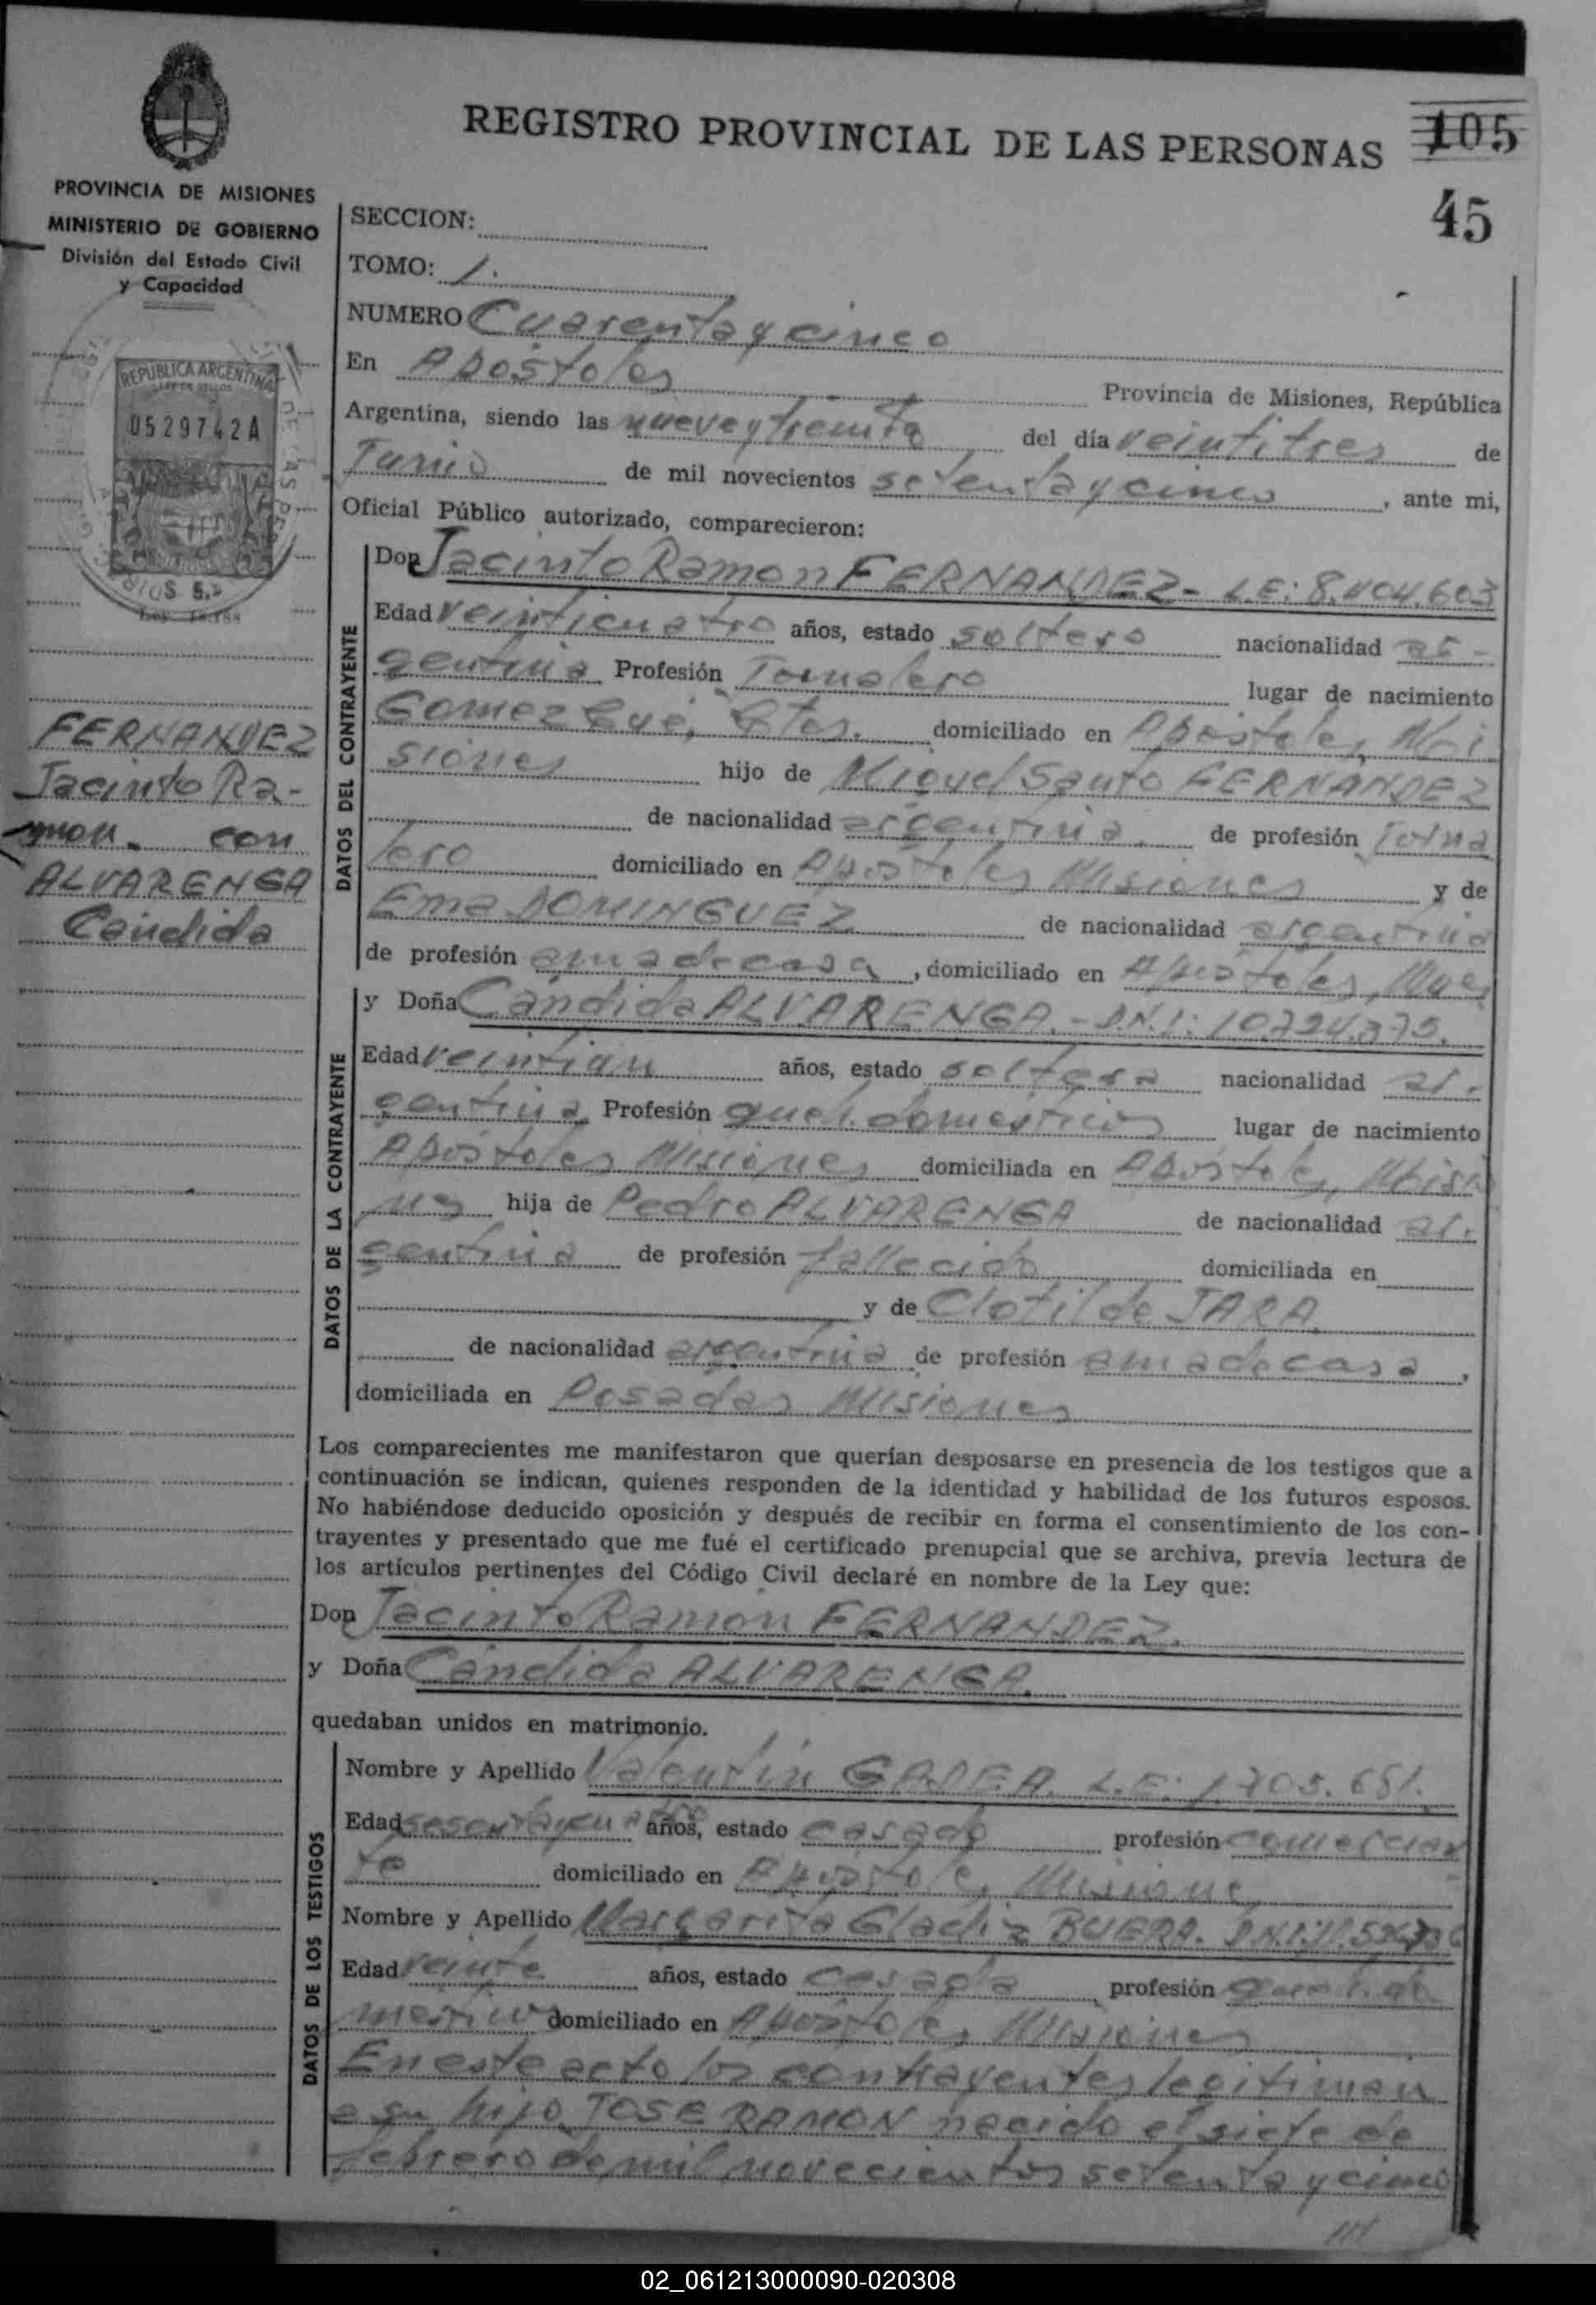 REGISTRO PROVINCIAL DE LAS PERSONAS
105
45
PROVINCIA DE MISIONES
MINISTERIO DE GOBIERNO
División del Estado Civil
y Capacidad
REPUBLICA ARGENTINA
LEY DE SELLOS
0529742A
FERNANDEZ
Jacinto Ra-
mon. con
ALVARENGA
Cándida
SECCION:
TOMO: 1.
NUMERO Cuarenta y cinco
En Apóstoles Provincia de Misiones, República
Argentina, siendo las nueve y treinta del día veintitres de
Junio de mil novecientos setenta y cinco, ante mi,
Oficial Público autorizado, comparecieron:
DATOS DEL CONTRAYENTE
Don Jacinto Ramon FERNANDEZ- L.E: 8.404.603
Edad veinticuatro años, estado soltero nacionalidad ar-
gentina Profesión Jornalero lugar de nacimiento
Gomez domiciliado en Apóstoles, Mi
siones hijo de Miguel Santo FERNANDEZ
de nacionalidad argentina de profesión Jorna
lero domiciliado en Apóstoles Misiones y de
Ema DOMINGUEZ de nacionalidad argentina
de profesión ama de casa, domiciliado en Apóstoles,
DATOS DE LA CONTRAYENTE
y Doña Cándida ALVARENGA.- D.N.I: 10.724.375.
Edad veintiun años, estado soltera nacionalidad ar-
gentina Profesión queh. domesticos lugar de nacimiento
Apóstoles Misiones domiciliada en Apóstoles, Misio
nes hija de Pedro ALVARENGA de nacionalidad ar-
gentina de profesión fallecido domiciliada en
y de Clotilde JARA
de nacionalidad argentina de profesión ama de casa,
domiciliada en Posadas Misiones
Los comparecientes me manifestaron que querían desposarse en presencia de los testigos que a
continuación se indican, quienes responden de la identidad y habilidad de los futuros esposos.
No habiéndose deducido oposición y después de recibir en forma el consentimiento de los con-
trayentes y presentado que me fué el certificado prenupcial que se archiva, previa lectura de
los artículos pertinentes del Código Civil declaré en nombre de la Ley que:
Don Jacinto Ramón FERNANDEZ.
y Doña Cándida ALVARENGA.
quedaban unidos en matrimonio.
DATOS DE LOS TESTIGOS
Nombre y Apellido Valentín GADEA. L.E: 1.705.681.
Edad sesenta y cuatro años, estado casado profesión comercian
te domiciliado en Apóstoles Misiones
Nombre y Apellido Margarita Gladiz BUERA. D.N.I:
Edad veinte años, estado casada profesión queh. do
mestico domiciliado en Apóstoles Misiones
En este acto los contrayentes legitiman
a su hijo JOSE RAMON nacido el siete de
febrero de mil novecientos setenta y cinco
02_061213000090-020308